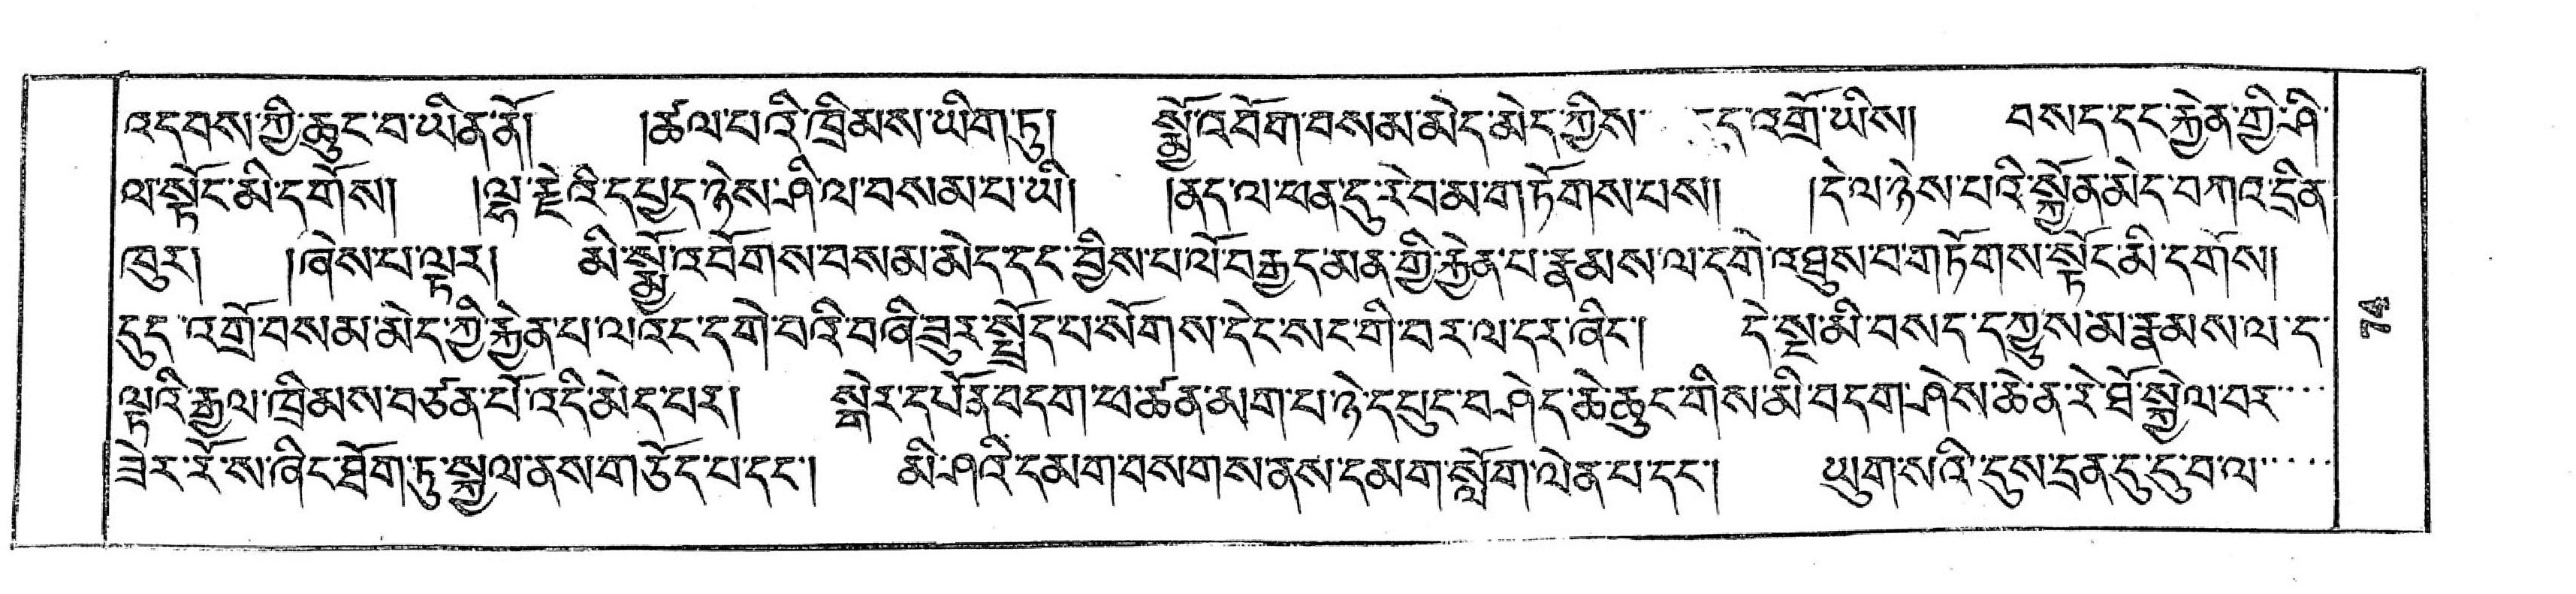 འདབས་ཀྱི་ཆུང་བ་ཡིན་ནོ། །ཚལ་པའི་ཁྲིམས་ཡིག་ཏུ། སྨྱོ་འབོག་བསམ་མེད་མེད་ཀྱིས་ ད་འགྲོ་ཡིས། བསད་དང་རྐྱེན་གྱི་ཤི་
ལ་སྟོང་མི་དགོས། །ལྷ་རྗེའི་དཔྱད་ཉེས་ཤི་ལ་བསམ་པ་ཡི། །ནད་ལ་ཕན་དུ་རེ་བམ་གཏོགས་པས། །དེ་ལ་ཉེས་པའི་སྐྱོན་མེད་བཀའ་དྲིན་
ཁུར། །ཞེས་པ་ལྟར། མི་སྨྱོ་འབོགས་བསམ་མེད་དང་བྱིས་པ་ལོ་བརྒྱད་མན་གྱི་རྐྱེན་པ་རྣམས་ལ་དགེ་འཐུས་བ་གཏོགས་སྟོང་མི་དགོས།
དུད་འགྲོ་བསམ་མེད་ཀྱི་རྐྱེན་པ་ལའང་དགེ་བའི་བཞི་ཟུར་སྤྲོད་པ་སོགས་དེང་སང་གི་བར་ལ་དར་ཞིང་། དེ་སྔ་མི་བསད་དཀྱུས་མ་རྣམས་ལ་ད་
ལྟའི་རྒྱལ་ཁྲིམས་བཙན་པོ་འདི་མེད་པར། སྒེར་དཔོན་བདག་ཕ་ཚན་མག་པ་ཉེ་དཔུང་བཤེད་ཆེ་ཆུང་གིས་མི་བདག་ཤེས་ཆེ་ན་རེ་ཐོ་སྐྱེལ་བར་
ཟེར་རོ་ས་ཞིང་ཐོག་ཏུ་སྐྱལ་ནས་གཅོད་པ་དང་། མི་ཤའི་དམག་བསགས་ནས་དམག་སློག་ལེན་པ་དང་། ཡུག་སའི་དུས་དྲན་དུ་དུ་བ་ལ་